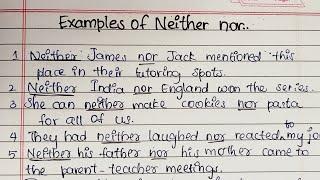 Examples of Neither nor..
1 Neither James nor Jack mentioned this
place in their tutoring spots.
2 Neither India nor England won the series.
3 She can neither make cookies nor pasta
for all of us.
to
4 They had neither laughed nor reacted my jo
5 Neither his father nor his mother came to
the parent-teacher meetings.